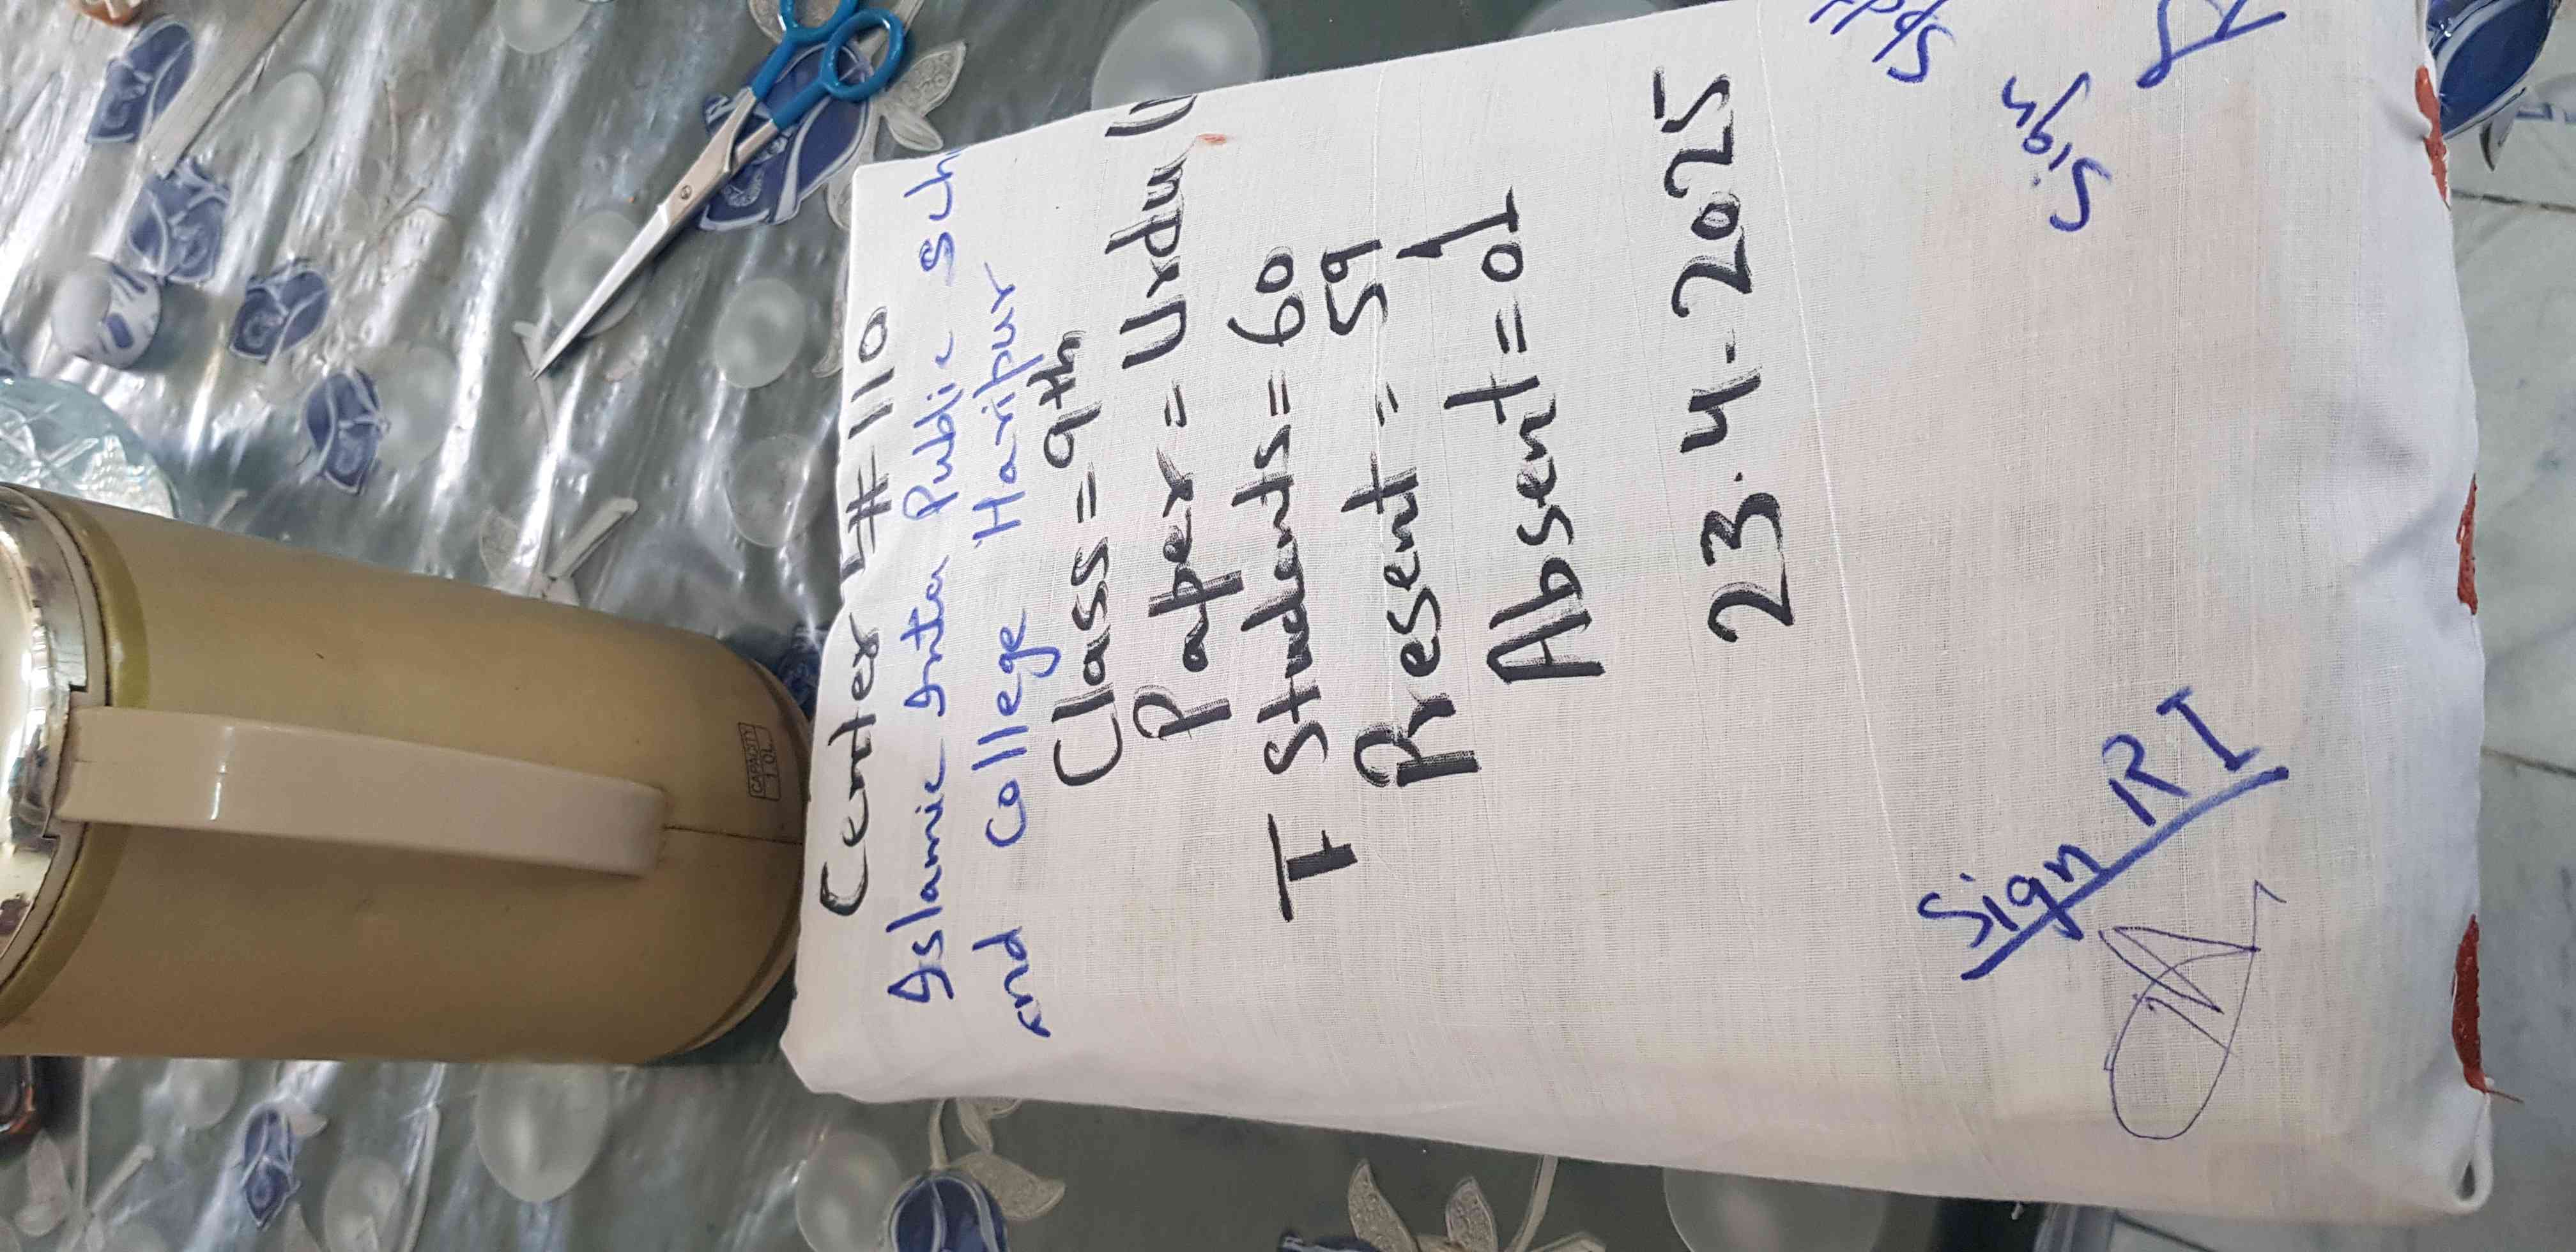 Center # 110
Islamic Inter Public Sch
and College Haripur
Class = 9th
Paper = Urdu
T Students = 60
Present = 59
Absent = 01
23.4.2025
Sign RI
Sign
CAPACITY
1.0L